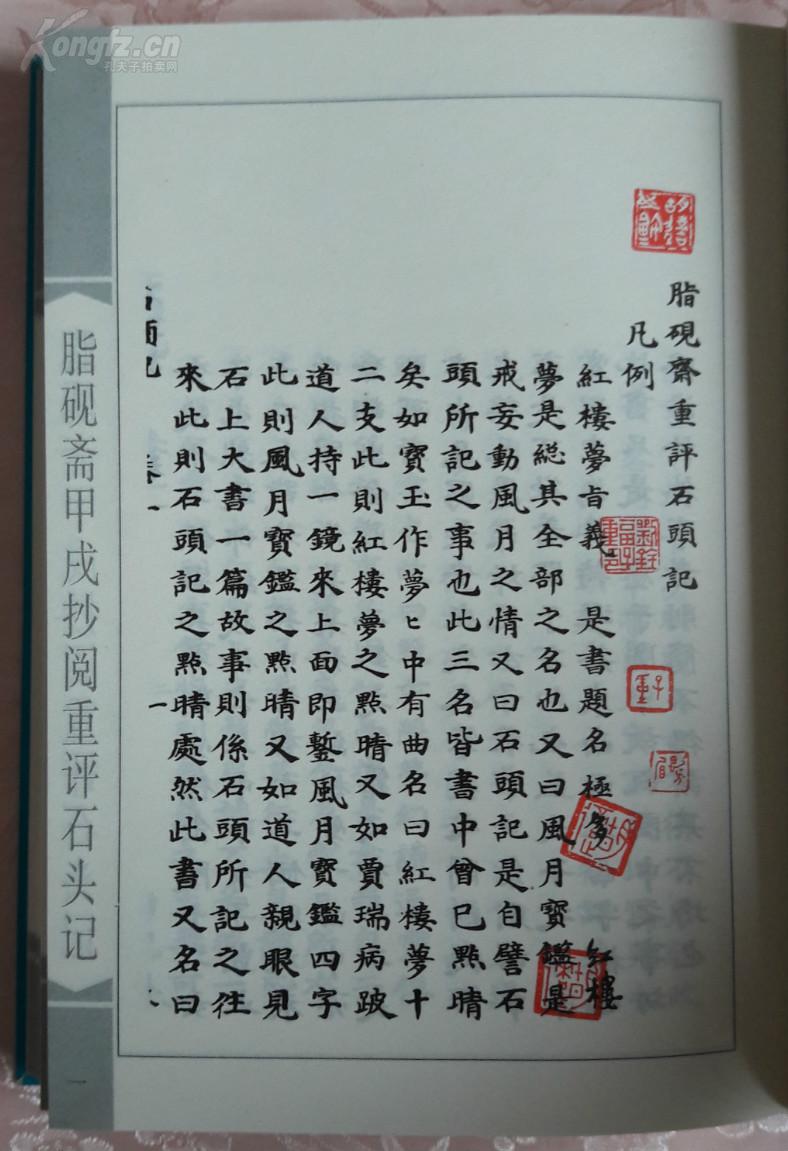 脂硯齋重評石頭記
凡例
紅樓夢旨義 是書題名極多 紅樓
夢是総其全部之名也又曰風月寶鑑是
戒妄動風月之情又曰石頭記是自譬石
頭所記之事也此三名皆書中曾已點晴
矣如寶玉作夢ヒ中有曲名曰紅樓夢十
二支此則紅樓夢之點晴又如賈瑞病跛
道人持一鏡來上面即鏨風月寳鑑四字
此則風月寳鑑之點晴又如道人親眼見
石上大書一篇故事則係石頭所記之往
來此則石頭記之點晴處然此書又名曰
卷一
一
脂砚斋甲戌抄阅重评石头记
一
Kongfz.cn
孔夫子拍卖网